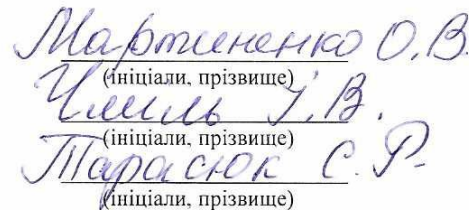 Мартиненко О.В.
(ініціали, прізвище)
Чміль І.В.
(ініціали, прізвище)
Тарасюк С.Р.
(ініціали, прізвище)